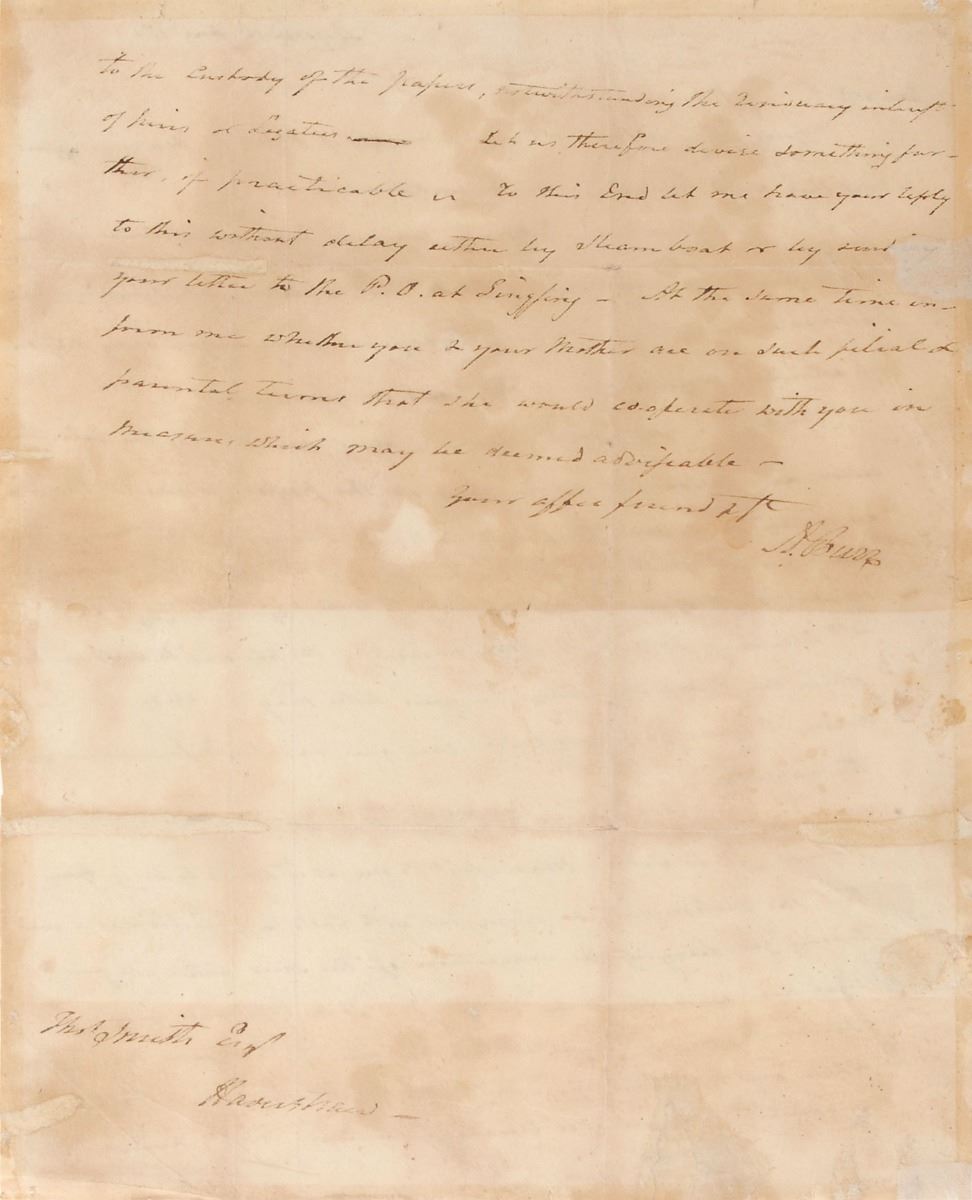 to the Custody of the papers, notwithstanding the Revisionary interest
of heirs or Legatees — Let us therefore devise something fur-
ther, if practicable — To this End let me have your reply
to this without delay either by Steam boat or by send
your letter to the P. O. at Singsing — At the same time in-
form me whether you & your Mother are on such filial &
parental terms that she would cooperate with you in
Measures which may be deemed adviseable —
Your affec friend &c
A. Burr
Thos Smith Esq
Haverstraw —